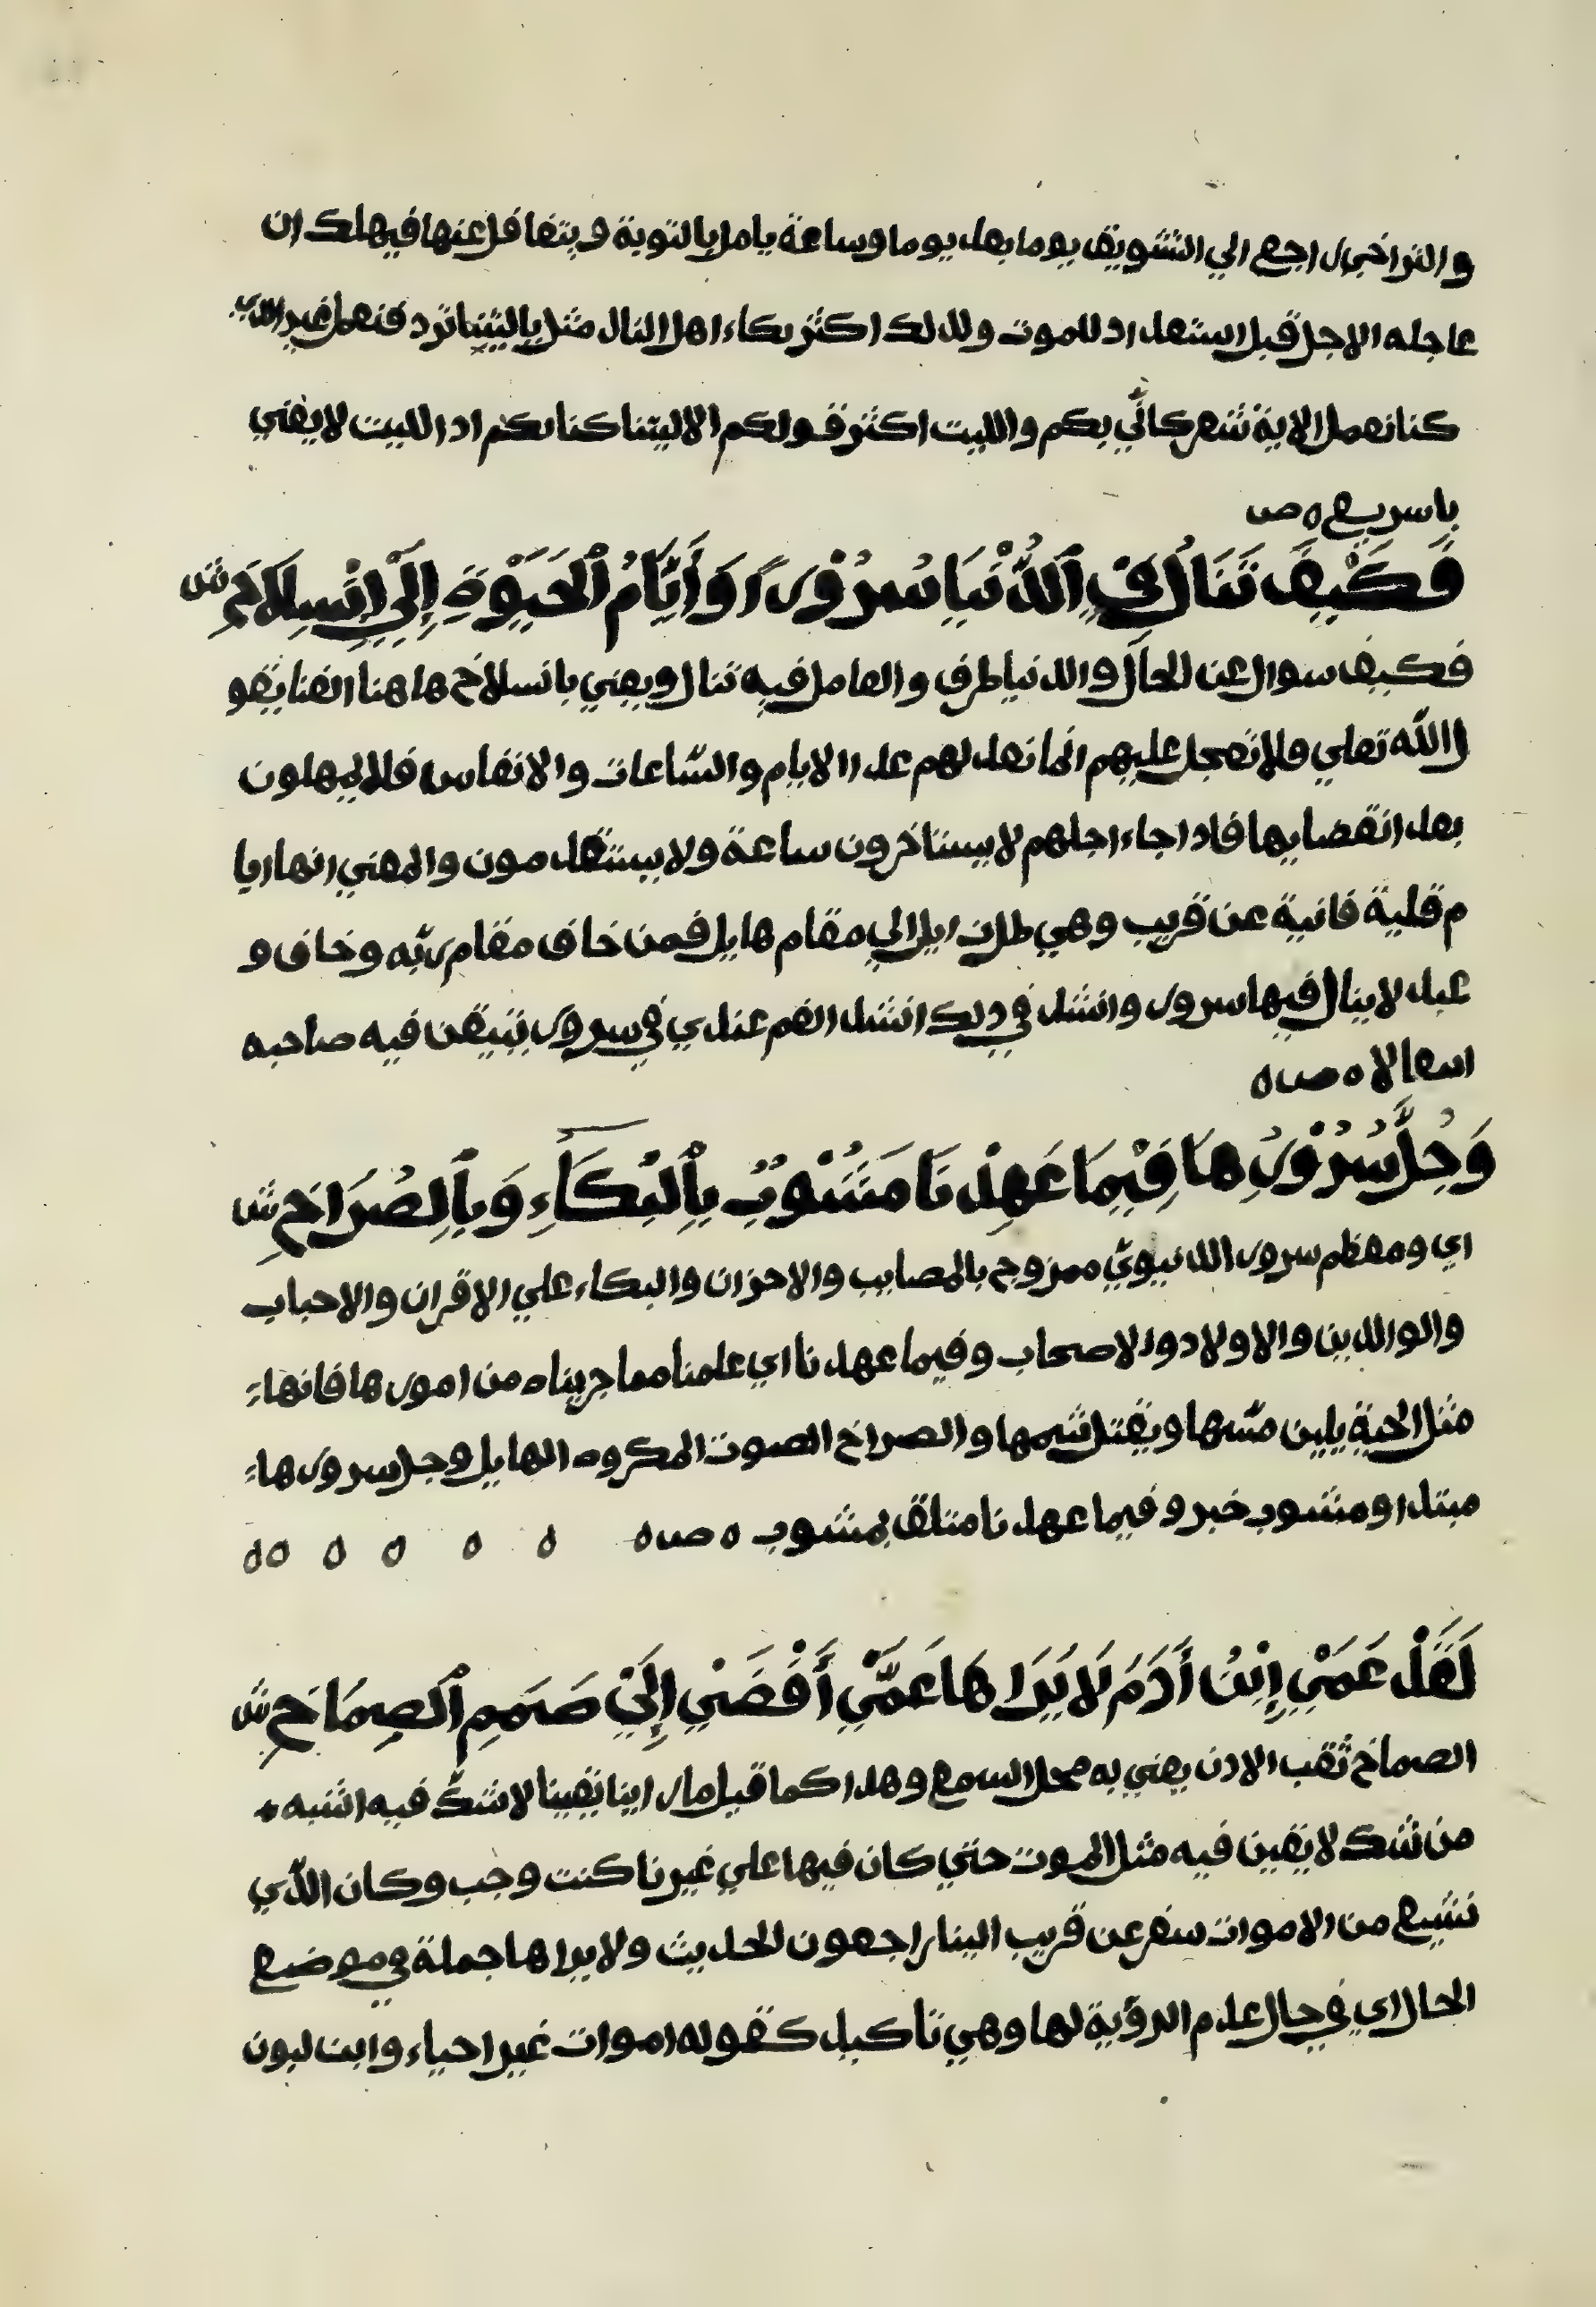 والتراخي راجع الي التشويف يوما بعد يوما وساعة يامل بالتوبة ويتغافل عنها فيهلك ان
عاجله الاجل قبل استعداد للموت ولذلك اكثر بكاء اهل النال مثل ياليتنا نرد فنعمل غير الذي
كنا نعمل الاية شعر كاني بكم والليت اكثر قولكم الا ليتنا كنا بكم اد الليت لا يغني
يا سريع ٥ ص
فَكَيْفَ تَنَالُ فِي ٱلدُّنْيَا سُرُوْرًا وَأَيَّامُ ٱلْحَيَوٰةِ إِلَيْ إِنْسِلَاخِ ش
فكيف سوال عن الحال والدنيا ظرف والعامل فيه تنال ويعني بانسلاخ هاهنا الفنا يقو
ل الله تعلي فلا تعجل عليهم انما نعد لهم عدا الايام والساعات والانفاس فلا يمهلون
بعد انقضايها فاذا جاء اجلهم لا يستاخرون ساعة ولا يستقدمون والمعني انها ايا
م قلية فانية عن قريب وهي ايل الي مقام هايل فمن خاف مقام ربه وخاف و
عيد لا ينال فيها سرور وانشد في ذلك اشد الغم عندي في سرور يتيقن فيه صاحبه
انتقالا ٥ ص ٥
وَجُلُّ سُرُوْرِهَا فِيْمَا عَهِدْنَا مَشُوْبٌ بِٱلْبُكَآءِ وَبِٱلصُرَاخِ ش
اي ومعظم سرور الدنيوي ممزوج بالمصايب والاحزان والبكاء علي الاقران والاحباب
والوالدين والاولاد والاصحاب وفيما عهدنا اي علمنا مما جربناه من امورها فانها
مثل الحية يلين مسها ويقتل سمها والصراخ الصوت المكروه الهايل وجل سرورها
مبتدا ومشوب خبر وفيما عهدنا متلق بمشوب ٥ ص ٥ ٥ ٥ ٥ ٥ ٥٥
لَقَدْ عَمَيْ إِبْنُ أَدَمَ لَا يَرَاهَا عَمًى أَفْضَيْ إِلَيْ صَمَمِ ٱلصِمَاخِ ش
الصماخ ثقب الاذن يعني به محل السمع وهذا كما قيل ما راينا يقينا لا شك فيه اشبه
من شك لا يقين فيه مثل الموت حتي كان فيها علي غيرنا كنت وجب وكان الذي
نشيع من الاموات سفر عن قريب الينا راجعون الحديث ولا يراها جملة في موضع
الحال اي في حال عدم الرؤية لها وهي تاكيد كقوله اموات غير احياء وابن لبون